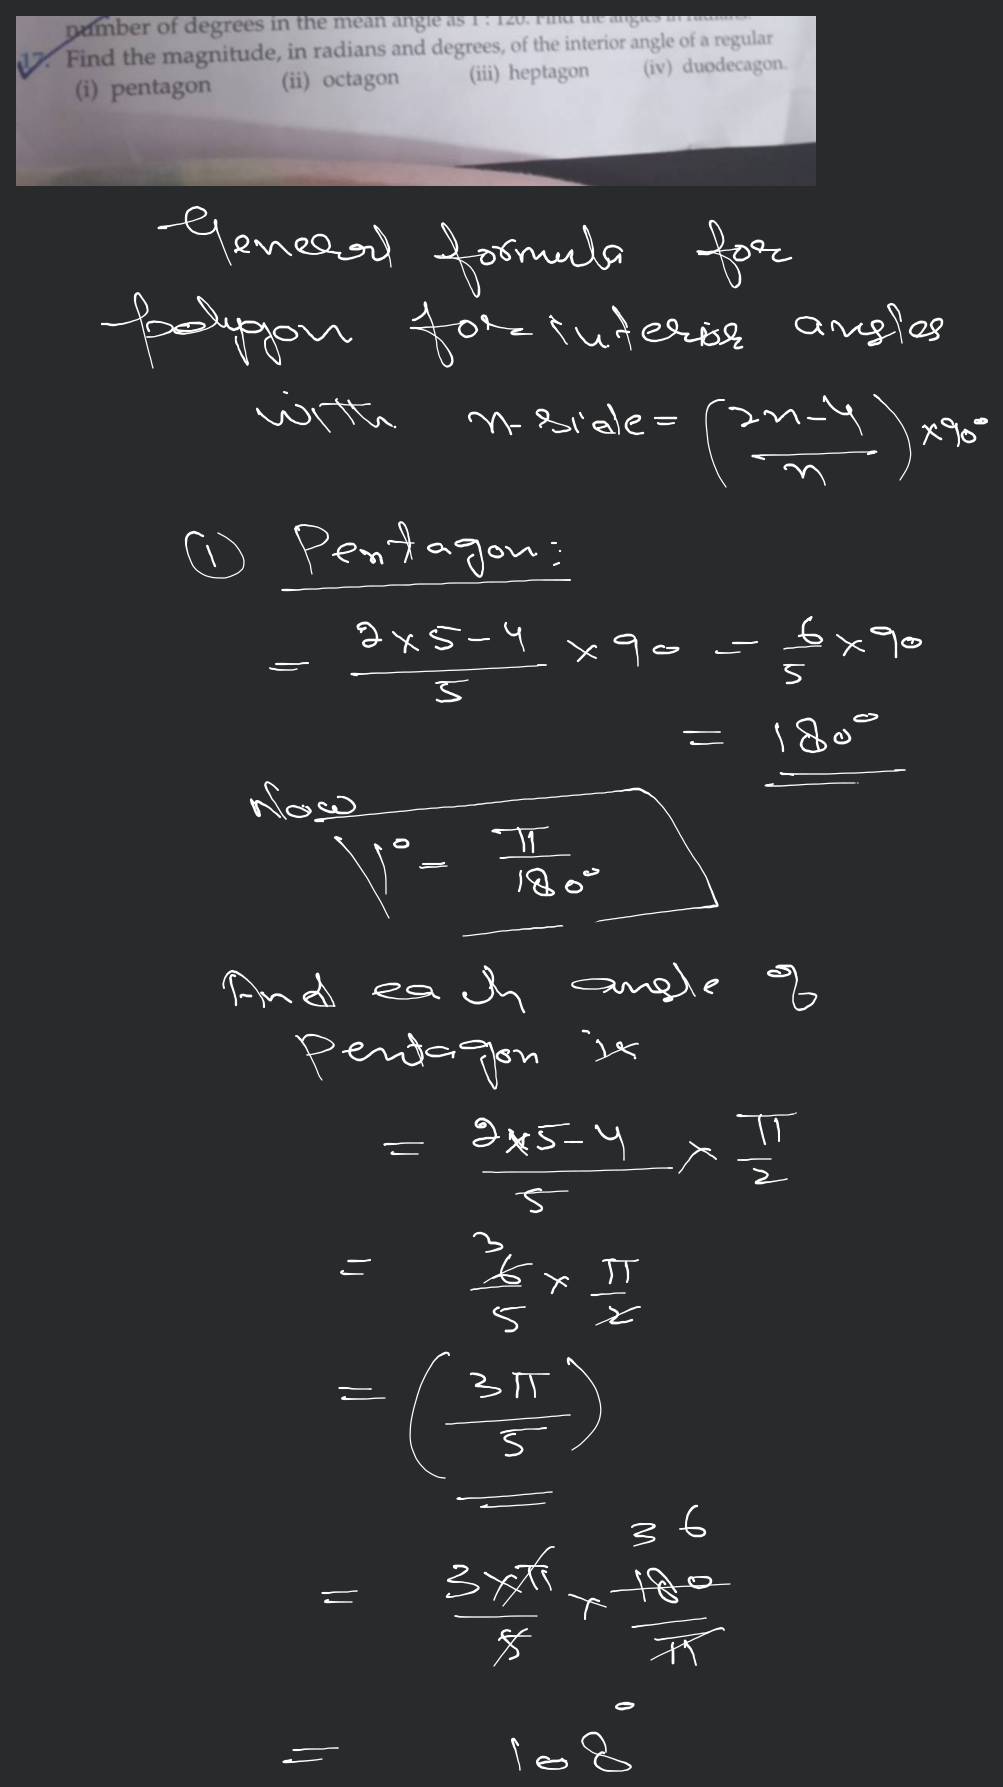 number of degrees in the mean angle as 1 : 120. Find the angles in radians.
17. Find the magnitude, in radians and degrees, of the interior angle of a regular
(i) pentagon (ii) octagon (iii) heptagon (iv) duodecagon.
General formula for
polygon for interior angles
with n-side = (2n-4/n) × 90°
① Pentagon:
= 2×5-4/5 × 90 = 6/5 × 90
= 180°
Now
1° = π/180°
And each angle of
pentagon is
= 2×5-4/5 × π/2
= 3 6/5 × π/2
= (3π/5)
= 3×π/5 × 36 180/π
= 108°